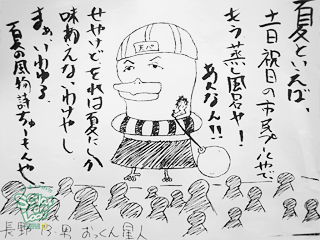 夏といえば、
土日祝日の市民プールやで
もう蒸し風呂や！
あんなん!!
せやけどそれは夏にしか
味わえんないわけやし
まぁ、いわゆる
夏の風物詩ちゅーもんや
長野 13 男 おっくん星人